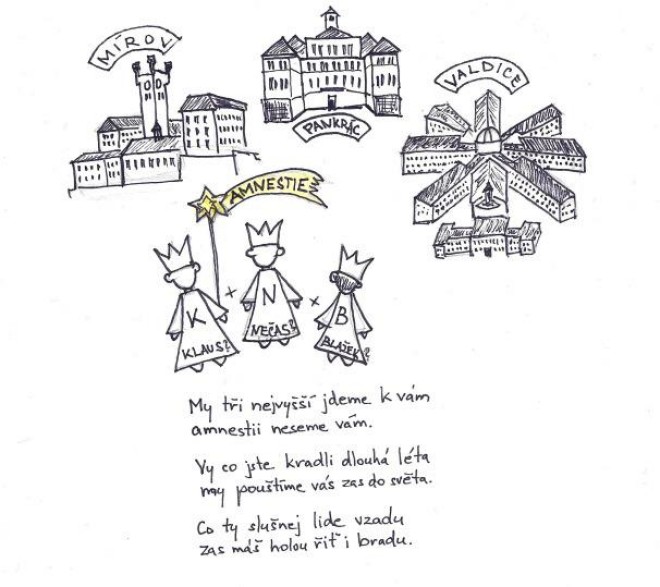 MÍROV
PANKRÁC
VALDICE
AMNESTIE
K
KLAUS?
+
N
NEČAS?
+
B
BLAŽEK?
My tři nejvyšší jdeme k vám
amnestii neseme vám.
Vy co jste kradli dlouhá léta
my pouštíme vás zas do světa.
Co ty slušnej lide vzadu
zas máš holou řiť i bradu.